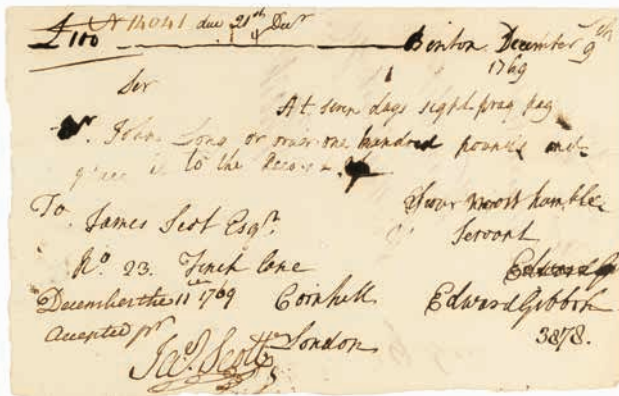 £100 No 14041 due 21th Decr Beriton December 9th
1769
Ser
At seven days sight pray pay
Mr. John Long or order one hundred pounds and
place it to the Accou
Your moost humble
Servant
To James Scot Esqr.
No. 23. Finch lane
Cornhill
London
Edward Gibbon
3878.
December the 11 1769
Accepted pr
Jas. Scott